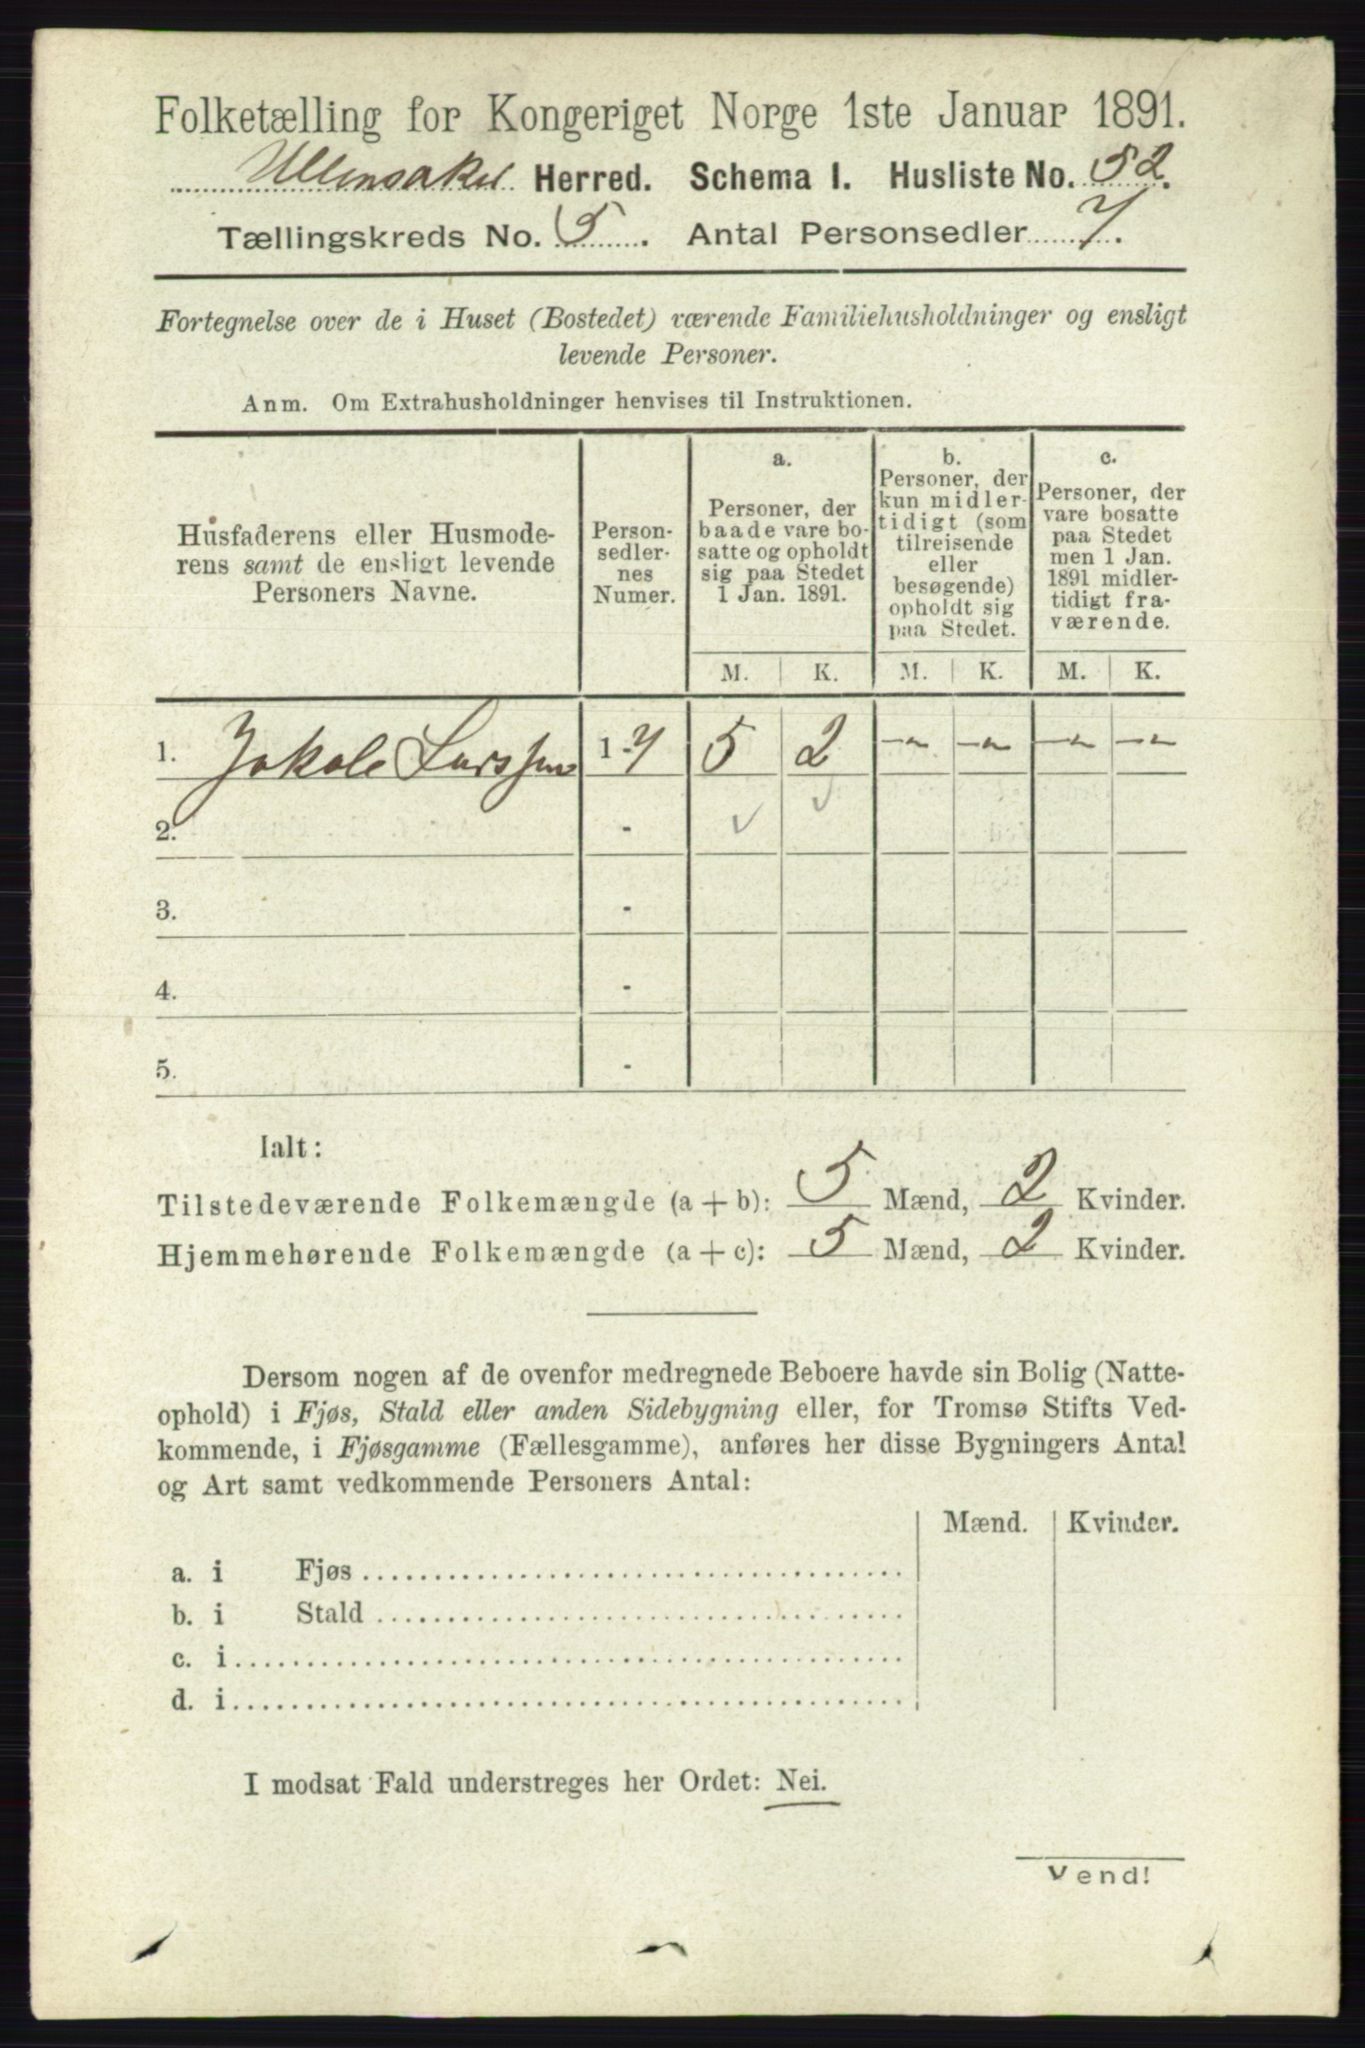 Folketælling for Kongeriget Norge 1ste Januar 1891.
Ullensaker Herred. Schema I. Husliste No. 52.
Tællingskreds No. 5. Antal Personsedler 7.
Fortegnelse over de i Huset (Bostedet) værende Familiehusholdninger og ensligt
levende Personer.
Anm. Om Extrahusholdninger henvises til Instruktionen.
Husfaderens eller Husmode-
rens samt de ensligt levende
Personers Navne.
Person-
sedler-
nes
Numer.
a.
Personer, der
baade vare bo-
satte og opholdt
sig paa Stedet
1 Jan. 1891.
b.
Personer, der
kun midler-
tidigt (som
tilreisende
eller
besøgende)
opholdt sig
paa Stedet.
c.
Personer, der
vare bosatte
paa Stedet
men 1 Jan.
1891 midler-
tidigt fra-
værende.
M. K. M. K. M. K.
1. Jakob Larssen 1-7 5 2 — — — —
2. - ✓ ✓
3. -
4. -
5. -
Ialt:
Tilstedeværende Folkemængde (a + b): 5 Mænd, 2 Kvinder.
Hjemmehørende Folkemængde (a + c): 5 Mænd, 2 Kvinder.
Dersom nogen af de ovenfor medregnede Beboere havde sin Bolig (Natte-
ophold) i Fjøs, Stald eller anden Sidebygning eller, for Tromsø Stifts Ved-
kommende, i Fjøsgamme (Fællesgamme), anføres her disse Bygningers Antal
og Art samt vedkommende Personers Antal:
Mænd. Kvinder.
a. i Fjøs
b. i Stald
c. i
d. i
I modsat Fald understreges her Ordet: Nei.
Vend!